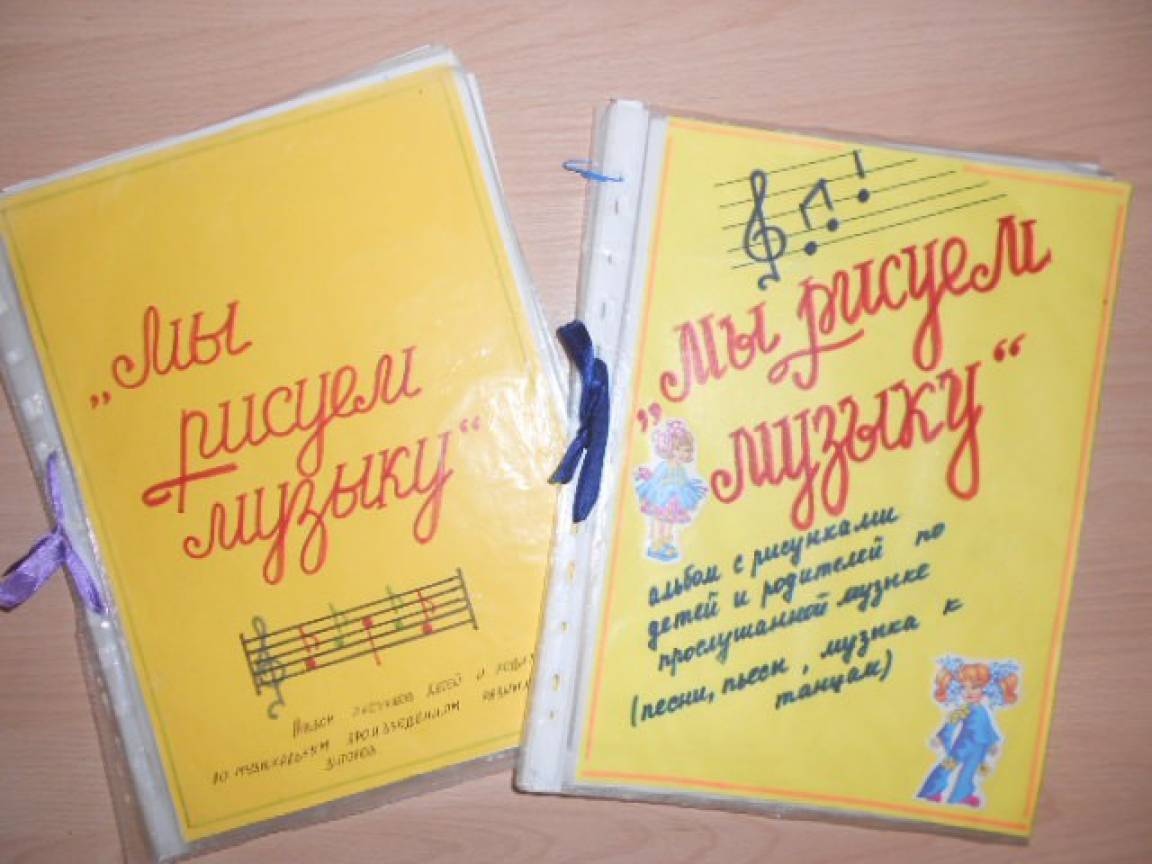 „Мы
рисуем
музыку“
Альбом рисунков детей и
по музыкальным произведениям
„Мы рисуем
музыку“
альбом с рисунками
детей и родителей по
прослушанной музыке
(песни, пьесы, музыка к
танцам)